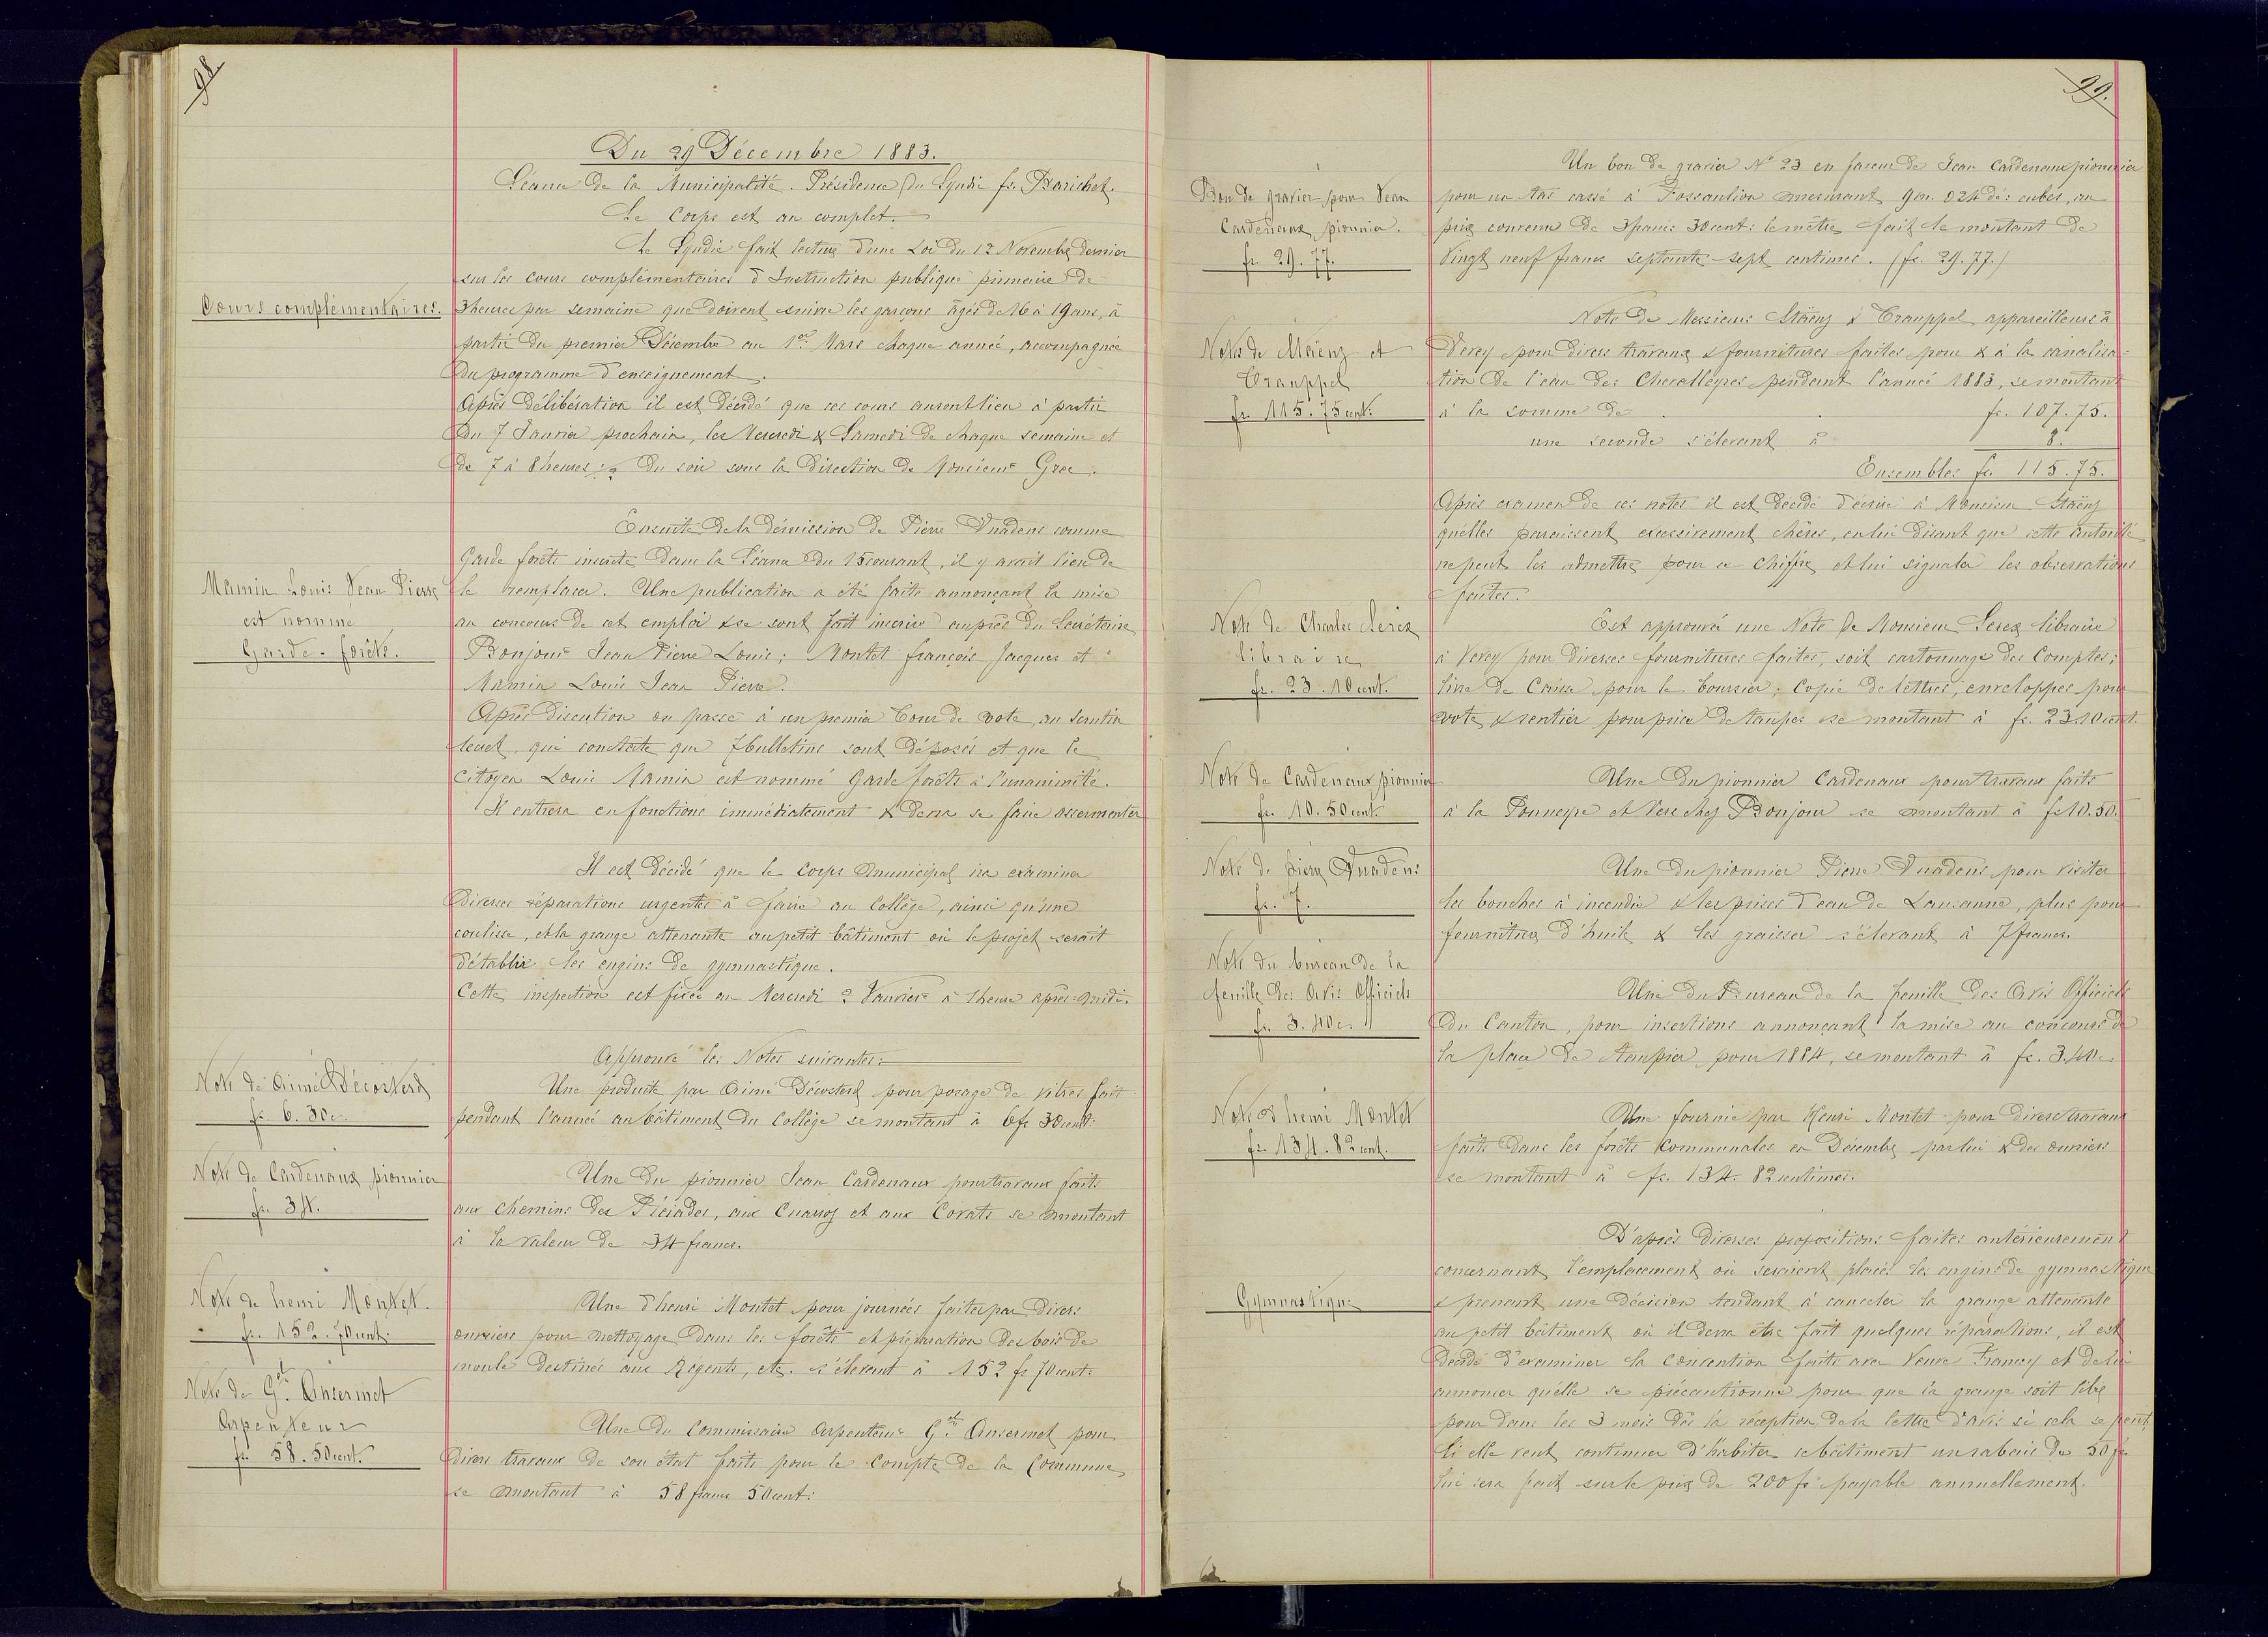 98
Du 29 Décembre 1883.
Séance de la Municipalité. Présidence du Syndic fs. Barichet.
Le Corps est au complet.
Le Syndic fait lecture d'une Loi du 12 Novembre dernier
sur les cours complémentaires d'Instruction publique primaire de
Cours complémentaires.
3 heures par semaine que doivent suivre les garçons âgés de 16 à 19 ans, à
partir du premier Décembre au 1er Mars chaque année, accompagnée
du programme d'enseignement.
Après délibération il est décidé que ces cours auront lieu à partir
du 7 Janvier prochain, les Mercredi & Samedi de chaque semaine et
de 7 à 8 heures ½ du soir sous la direction de Monsieur Grec.
Ensuite de la démission de Pierre Dnadens comme
Garde forêts inscrite dans la Séance du 15 courant, il y avait lieu de
Mamin Louis Jean Pierre
est nommé
Garde-forêts.
le remplacer. Une publication a été faite annonçant la mise
au concours de cet emploi & se sont fait inscrire auprès du Secrétaire
Bonjour Jean Pierre Louis; Montet françois Jacques et
Mamin Louis Jean Pierre.
Après discution on passe à un premier tour de vote, au scrutin
secret qui constate que 7 bulletins sont déposés et que le
Citoyen Louis Mamin est nommé Garde forêts à l'unanimité.
Il entrera en fonctions immédiatement & devra se faire assermenter
Il est décidé que le Corps municipal ira examiner
diverses réparations urgentes à faire au Collège, ainsi qu'une
coulisse, et la grange attenante au petit bâtiment où le projet serait
d'établir les engins de gymnastique.
Cette inspection est fixée au Mercredi 2 Janvier à 1 heure après-midi.
Approuvé les Notes suivantes:
Note de Aimé Décosterd
fr. 6. 30c.
Une produite par Aimé Décosterd pour posage de vitres fait
pendant l'année au bâtiment du Collège se montant à 6 fr 30 cent:
Note de Cardenaux pionnier
fr. 34.
Une du pionnier Jean Cardenaux pour travaux faits
aux chemins des Pléiades, aux Cuarroz et aux Covats se montant
à la valeur de 34 francs.
Note de henri Montet.
fr. 152. 70 cent:
Une d'henri Montet pour journées faites par divers
ouvriers pour nettoyage dans les forêts et préparation des bois de
moule destinés aux Régents, etc. s'élevant à 152 fr 70 cent:
Note de Gel. Ansermet
Arpenteur
fr. 58. 50 cent.
Une du Commissaire Arpenteur Gel. Ansermet pour
divers travaux de son état faits pour le compte de la Commune
se montant à 58 francs 50 cent:
99.
Bon de gravier pour Jean
Cardenaux, pionnier.
fr. 29. 77.
Un bon de gravier No 23 en faveur de Jean Cardenaux pionnier
pour un tas cassé à Fossaulion mesurant 9m. 024 dé: cubes, au
prix convenu de 3 francs 30 cent: le mètre fait le montant de
Vingt neuf francs septante-sept centimes. (fr. 29.77.)
Note de Messieurs Stäenz & Trauppel appareilleurs à
Notes de Stäenz et
Trauppel
fr. 115. 75 cent.
Vevey pour divers travaux & fournitures faites pour & à la canalisa-
tion de l'eau des Chevalleyres pendant l'année 1883, se montant
à la somme de fr. 107.75.
une seconde s'élevant à 8.
Ensembles fr. 115.75.
Après examen de ces notes il est décidé d'écrire à Monsieur Stäenz
qu'elles paraissent excessivement chères, en lui disant que cette autorité
ne peut les admettre pour ce chiffre et lui signaler les observations
faites.
Note de Charles Jerez
libraire
fr. 23. 10 cent.
Est approuvé une Note de Monsieur Jerez libraire
à Vevey pour diverses fournitures faites, soit cartonnage des Comptes;
livre de Caisse pour le boursier; Copie de lettres; enveloppes pour
vote & rentier pour prise de taupes se montant à fr. 23.10 cent.
Note de Cardenaux pionnier
fr. 10. 50 cent.
Une du pionnier Cardenaux pour travaux faits
à la Ponneyre et Vers chez Bonjour se montant à fr 10.50.
Note de pierre Dnadens
fr. 7.
Une du pionnier Pierre Dnadens pour visiter
les bouches à incendie & les prises d'eau de Lausanne, plus pour
fourniture d'huile & les graisser s'élevant à 7 francs.
Note du bureau de la
feuille des Avis Officiels
fr. 3. 40c.
Une du Bureau de la feuille des Avis Officiels
du Canton, pour insertions annonçant la mise au concours de
la place de taupier pour 1884, se montant à fr. 3.40c
Note d'henri Montet
fr. 134. 82 cent.
Une fournie par Henri Montet pour divers travaux
faits dans les forêts communales en Décembre par lui & des ouvriers
se montant à fr. 134. 82 centimes.
D'après diverses propositions faites antérieurement
concernant l'emplacement où seraient placés les engins de gymnastique
Gymnastique
& prenant une décision tendant à canceler la grange attenante
au petit bâtiment où il devra être fait quelques réparations, il est
décidé d'examiner la Convention faite avec Veuve Francey et de lui
annoncer qu'elle se précautionne pour que la grange soit libre
pour dans les 3 mois dès la réception de la lettre d'avis si cela se peut,
Si elle veut continuer d'habiter ce bâtiment un rabais de 50 fr
lui sera fait sur le prix de 200 fr payable annuellement.